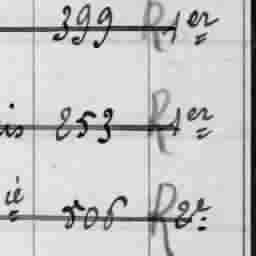 399 R 1er
is 253 R 1er
ié 506 R 2e